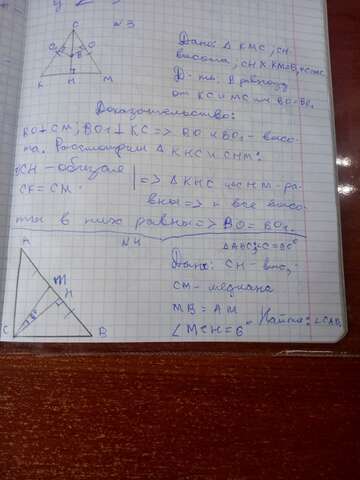 №3
C
O O
B
K H M
Дано: Δ KMC, CH-
высота, CH X KM=B,
Д-ть: B равноуд
от KC и MC или BO=BO₁.
Доказательство:
KO⊥CM; BO₁⊥KC=> BO и BO₁- высо-
та. Рассмотрим Δ KHC и CHM:
CH - общая
CK = CM
=> Δ KHC и CHM-ра-
вны=> и все высо-
ты в них равны=> BO= BO₁.
№4
A
M
H
C B
6°
Δ ABC; C=90°
Дано: CH - выс,
CM- медиана
MB = AM
∠ MCH = 6°
Найти: ∠CAB